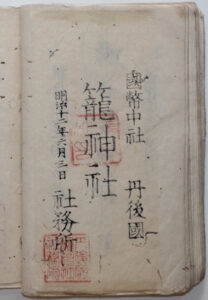 國幣中社 丹後國
籠神社
明治十二年六月三日 社務所